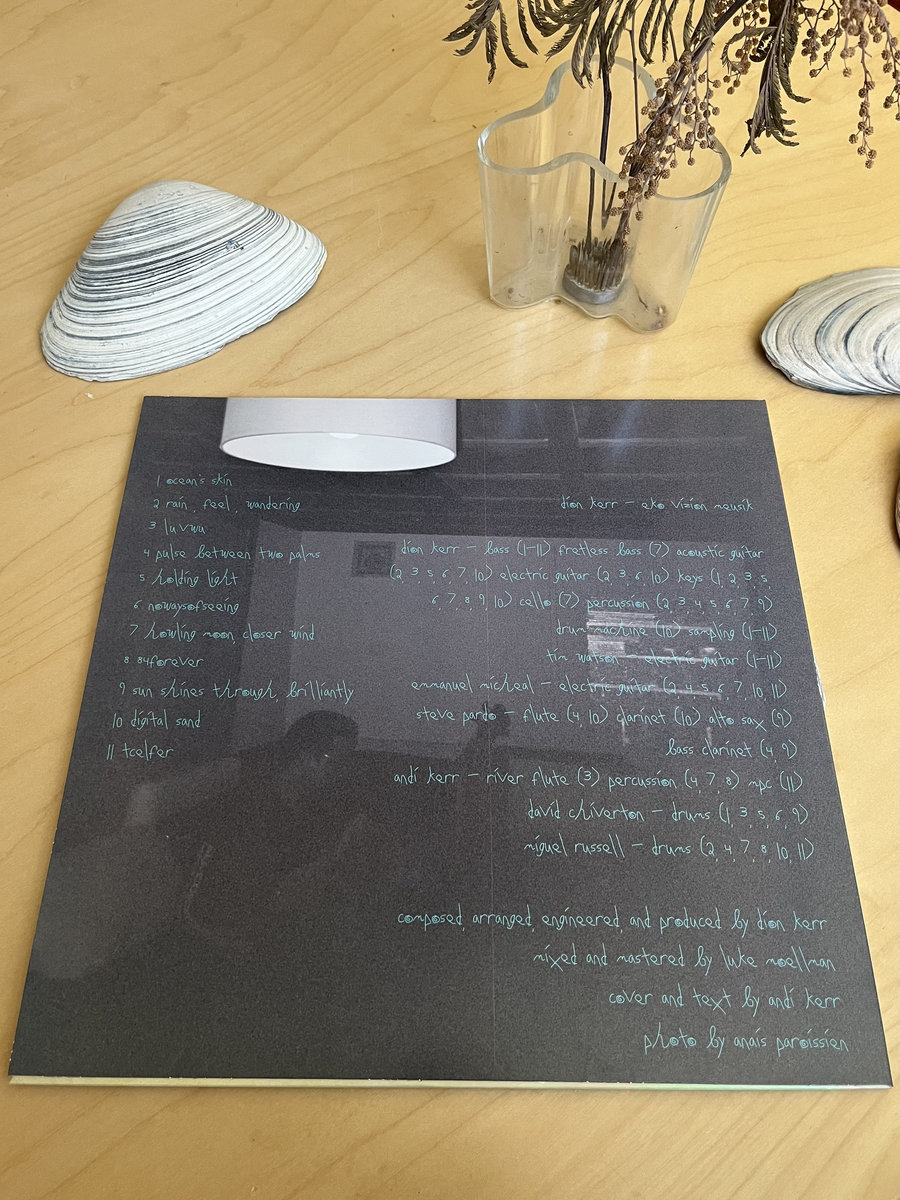 1 ocean's skin
2 rain, feel, wandering
3 luvwu
4 pulse between two palms
5 holding light
6 nowaysofseeing
7 howling moon, closer wind
8 84forever
9 sun shines through, brilliantly
10 digital sand
11 tcelfer
dion kerr – eko vizion meusik
dion kerr – bass (1–11) fretless bass (7) acoustic guitar
(2, 3, 5, 6, 7, 10) electric guitar (2, 3, 6, 10) keys (1, 2, 3, 5
6, 7, 8, 9, 10) cello (7) percussion (2, 3, 4, 5, 6, 7, 9)
drum machine (10) sampling (1–11)
tim watson – electric guitar (1–11)
emmanuel micheal – electric guitar (2, 4, 5, 6, 7, 10, 11)
steve pardo – flute (4, 10) clarinet (10) alto sax (9)
bass clarinet (4, 9)
andi kerr – river flute (3) percussion (4, 7, 8) mpc (11)
david chiverton – drums (1, 3, 5, 6, 9)
miguel russell – drums (2, 4, 7, 8, 10, 11)
composed, arranged, engineered, and produced by dion kerr
mixed and mastered by luke moellman
cover and text by andi kerr
photo by anais paroissien